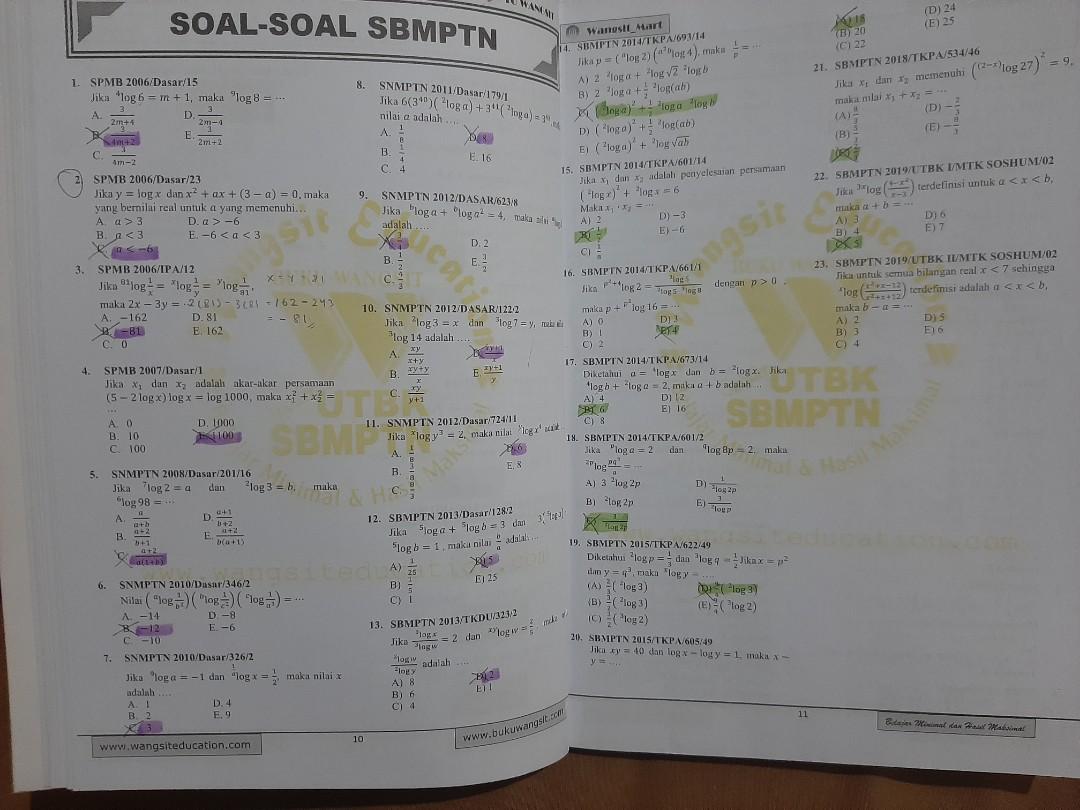 SOAL-SOAL SBMPTN
1. SPMB 2006/Dasar/15
Jika ⁴log 6 = m + 1, maka ⁹log 8 = ⋯
A. 3/(2m+4) D. 3/(2m−4)
B. 3/(4m+2) E. 3/(2m+2)
C. 3/(4m−2)
2. SPMB 2006/Dasar/23
Jika y = log x dan x² + ax + (3 − a) = 0, maka
yang bernilai real untuk a yang memenuhi...
A. a > 3 D. a > −6
B. a < 3 E. −6 < a < 3
C. a < −6
3. SPMB 2006/IPA/12
Jika ⁸¹log 1/x = ˣlog 1/y = ʸlog 1/81, x = y = 81
maka 2x − 3y = 2(81) − 3(81) = 162 − 243
A. −162 D. 81 = −81
B. −81 E. 162
C. 0
4. SPMB 2007/Dasar/1
Jika x₁ dan x₂ adalah akar-akar persamaan
(5 − 2 log x) log x = log 1000, maka x₁² + x₂² =
...
A. 0 D. 1000
B. 10 E. 1100
C. 100
5. SNMPTN 2008/Dasar/201/16
Jika ⁷log 2 = a dan ²log 3 = b, maka
⁶log 98 = ⋯
A. a/(a+b) D. (a+1)/(b+2)
B. (a+2)/(b+1) E. (a+2)/(b(a+1))
C. (a+2)/(a(1+b))
6. SNMPTN 2010/Dasar/346/2
Nilai (ᵃlog 1/b²)(ᵇlog 1/c²)(ᶜlog 1/a³) = ⋯
A. −14 D. −8
B. −12 E. −6
C. −10
7. SNMPTN 2010/Dasar/326/2
Jika ⁹log a = −1 dan ᵃlog x = 1/2, maka nilai x
adalah ....
A. 1 D. 4
B. 2 E. 9
C. 3
www.wangsiteducation.com
10
8. SNMPTN 2011/Dasar/179/1
Jika 6(3⁴⁰)(²log a) + 3⁴¹(²log a) = 3⁴³,
nilai a adalah ....
A. 1/8 D. 8
B. 1/4 E. 16
C. 4
9. SNMPTN 2012/DASAR/623/8
Jika ᵇlog a + ᵇlog a² = 4, maka nilai
adalah ....
A. 3/4 D. 2
B. 1/2 E. 3/2
C. 4/3
10. SNMPTN 2012/DASAR/122/2
Jika ²log 3 = x dan ³log 7 = y, maka
³log 14 adalah ....
A. xy/(x+y) D. (xy+1)/x
B. (xy+y)/x E. (xy+1)/y
C. x/(y+1)
11. SNMPTN 2012/Dasar/724/11
Jika ˣlog y³ = 2, maka nilai ʸlog x⁴ adalah
A. 1/8 D. 6
B. 3/8 E. 8
C. 8/3
12. SBMPTN 2013/Dasar/128/2
Jika ⁵log a + ⁵log b = 3 dan
⁵log b = 1, maka nilai b/a adalah ...
A) 1/25 D) 5
B) 1/5 E) 25
C) 1
13. SBMPTN 2013/TKDU/323/2
Jika ²log x/³log w = 2 dan ˣʸlog w = 2/5,
³log w/²log y adalah ....
A) 8 D) 2
B) 6 E) 1
C) 4
www.bukuwangsit.com
Wangsit_Mart
14. SBMPTN 2014/TKPA/693/14
Jika p = (ᵃlog 2)(ᵃ²ᵇlog 4), maka 1/p = ⋯
A) 2 ²log a + ²log √2 ²log b
B) 2 ²log a + 1/2 ²log(ab)
C) (²log a)² + 1/2 ²log a ²log b
D) (²log a)² + 1/2 ²log(ab)
E) (²log a)² + ²log √ab
15. SBMPTN 2014/TKPA/601/14
Jika x₁ dan x₂ adalah penyelesaian persamaan
(²log x)² + ²log x = 6
Maka x₁ · x₂ = ⋯
A) 2 D) −3
B) 1/2 E) −6
C) 1/8
16. SBMPTN 2014/TKPA/661/1
dengan p > 0 ,
A) 0 D) 3
B) 1 E) 4
C) 2
17. SBMPTN 2014/TKPA/673/14
Diketahui a = ⁴log x dan b = ²log x. Jika
⁴log b + ²log a = 2, maka a + b adalah ...
A) 4 D) 12
B) 6 E) 16
C) 8
18. SBMPTN 2014/TKPA/601/2
Jika ᵖlog a = 2 dan ᑫlog 8p = 2, maka
²ᵖlog pq²/a = ⋯
A) 3 ²log 2p D) 1/³log 2p
B) ²log 2p E) 3/²log p
C) 3/²log 2p
19. SBMPTN 2015/TKPA/622/49
Diketahui ²log p = 1/3 dan ³log q = 1/2 Jika x = p²
dan y = q³, maka ˣlog y = ....
(A) 2/3 (²log 3) (D) 9/4 (²log 3)
(B) 3/2 (²log 3) (E) 9/4 (³log 2)
(C) 1/2 (³log 2)
20. SBMPTN 2015/TKPA/605/49
Jika xy = 40 dan log x − log y = 1, maka x −
y = ....
(A) 18 (D) 24
(B) 20 (E) 25
(C) 22
21. SBMPTN 2018/TKPA/534/46
Jika x₁ dan x₂ memenuhi (⁽²⁻ˣ⁾log 27)² = 9,
maka nilai x₁ + x₂ = ⋯
22. SBMPTN 2019/UTBK I/MTK SOSHUM/02
terdefinisi untuk a < x < b,
maka a + b = ⋯
A) 3 D) 6
B) 4 E) 7
C) 5
23. SBMPTN 2019/UTBK II/MTK SOSHUM/02
Jika untuk semua bilangan real x < 7 sehingga
ˣlog((x²+x−12)/(x²+x+12)) terdefinisi adalah a < x < b,
maka b − a = ⋯
A) 2 D) 5
B) 3 E) 6
C) 4
11
Belajar Minimal dan Hasil Maksimal